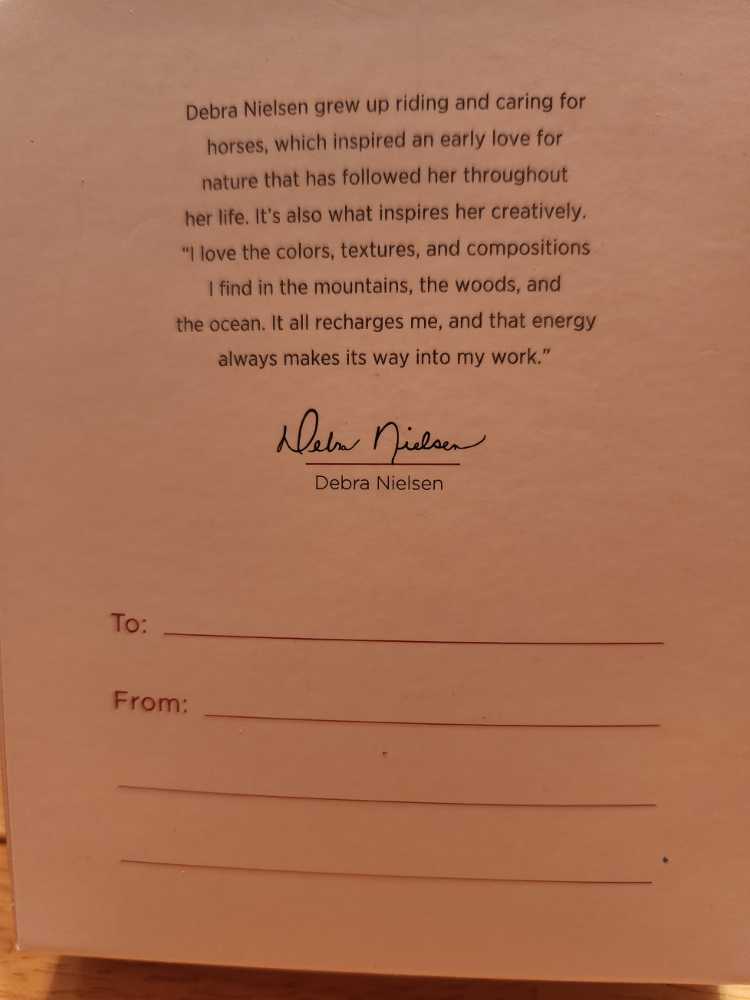 Debra Nielsen grew up riding and caring for
horses, which inspired an early love for
nature that has followed her throughout
her life. It's also what inspires her creatively.
"I love the colors, textures, and compositions
I find in the mountains, the woods, and
the ocean. It all recharges me, and that energy
always makes its way into my work."
Debra Nielsen
Debra Nielsen
To:
From: